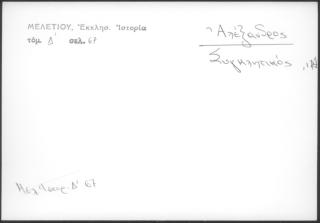 ΜΕΛΕΤΙΟΥ, Ἐκκλησ. Ἱστορία
τόμ. Δ' σελ. 67
Ἀλέξανδρος
Συγκλητικός
Μελ. Ἱστορ. Δ' 67